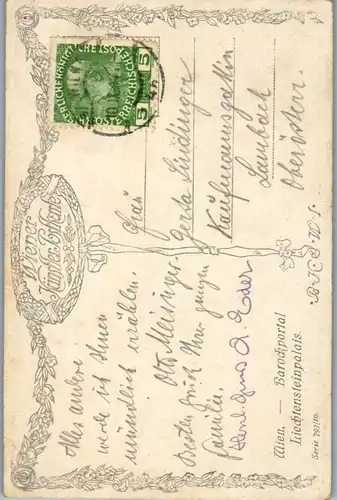 Wiener
Künstler-Postkarte
Alles andere
werde ich Ihnen
mündlich erzählen.
Otto Meisinger
Besten Gruß Ihrer ganzen
Familie.
Herzl. Gruß A. Eder
5 5
Frau
Gerta Lindinger
Kaufmannsgattin
Lambach
Oberösterr.
B.K.W.I.
Wien. — Barockportal
Liechtensteinpalais.
Serie 797/10.